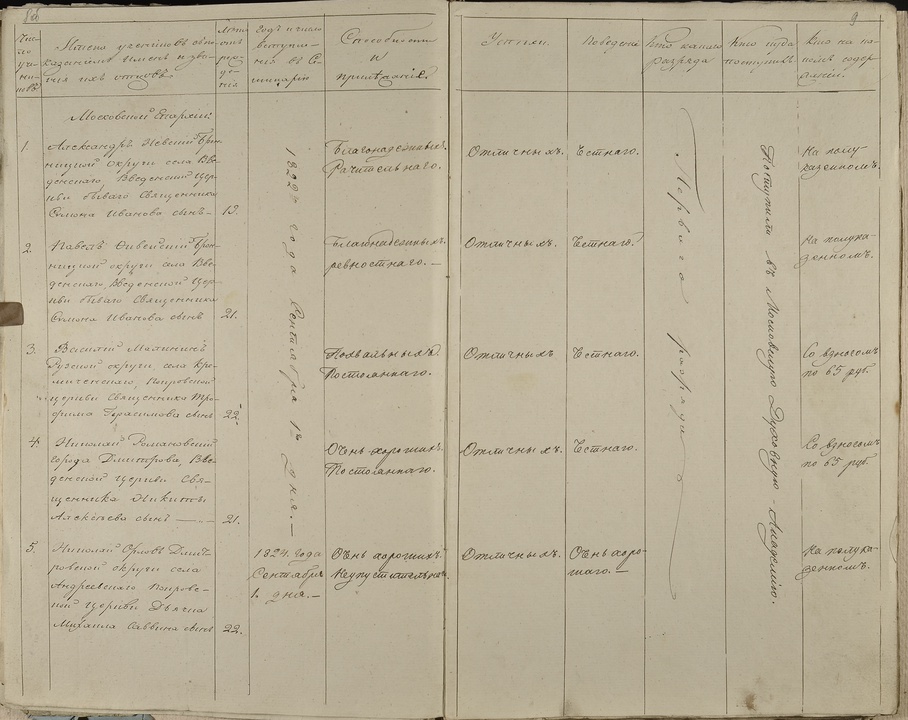 9
Число
учени-
ковъ
Имена учениковъ съ по-
казаніемъ имени и зва-
нія ихъ отцовъ.
Годъ и число
вступле-
нія въ Се-
минарію
Способности
и
прилѣжаніе.
Успѣхи.
Поведеніе
Кто какаго
разряда
Кто куда
поступилъ
Кто на ка-
комъ содер-
жаніи.
Московской Епархіи:
1.
Александръ Невскій Брон-
ницкой округи села Вве-
денскаго, Введенской Цер-
кви бывшаго Священника
Симона Иванова сынъ
19.
1822го года Сентября 1го дня.
Благонадежныхъ.
Рачительнаго.
Отличныхъ.
Честнаго.
Перваго разряда
Поступили въ Московскую Духовную Академію.
На полу-
казенномъ.
2.
Павелъ Брон-
ницкой округи села Вве-
денскаго, Введенской Цер-
кви бывшаго Священника
Симона Иванова сынъ
21.
Благонадежныхъ.
ревностнаго.
Отличныхъ.
Честнаго.
На полука-
зенномъ.
3.
Василій Малининъ
Рузской округи села
Покровской
церкви Священника Тро-
фима Герасимова сынъ
22.
Похвальныхъ.
Постояннаго.
Отличныхъ
Честнаго.
Со взносомъ
по 65 руб.
4.
Николай Романовскій
города Дмитрова, Вве-
денской Церкви Свя-
щенника Никиты
Алексѣева сынъ
21.
Очень хорошихъ.
Постояннаго.
Отличныхъ.
Честнаго.
Со взносомъ
по 65 руб.
5.
Николай Орловъ Дмит-
ровской округи села
Андреевскаго Покров-
ской Церкви Дьячка
Михаила Саввина сынъ
22.
1824. года
Сентября
1. дня.
Очень хорошихъ.
Неупустительнаго.
Отличныхъ.
Очень хоро-
шаго.
На полука-
зенномъ.